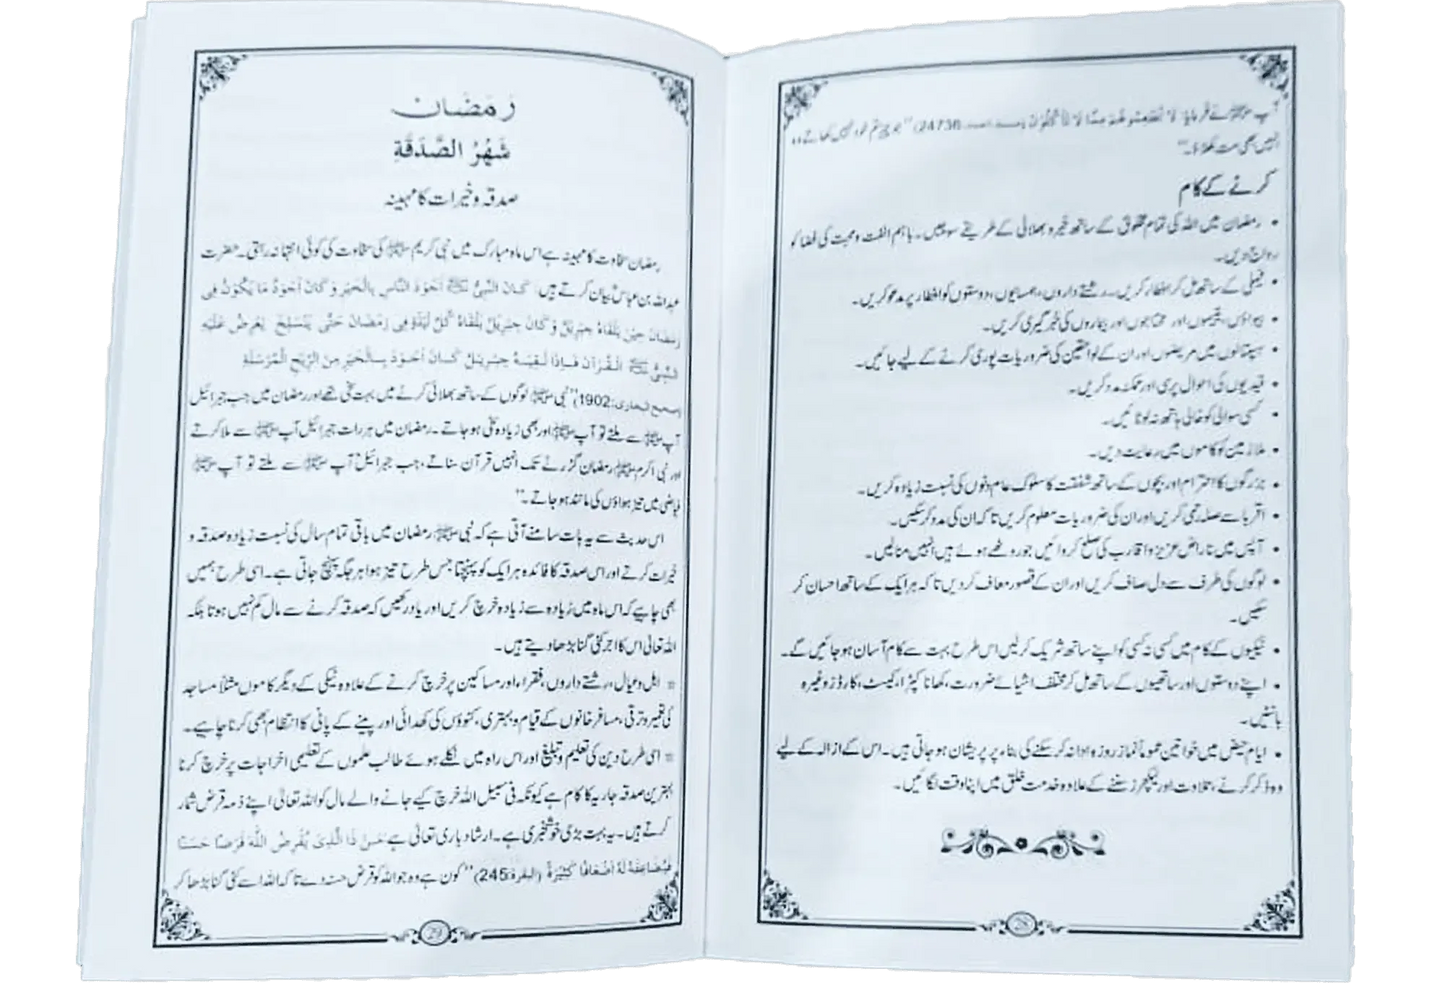 آپ ﷺ نے فرمایا: لَا تُطْعِمُوهُمْ مِمَّا لَا تَأْكُلُوْنَ (مسند احمد: 24736) ''جو چیز تم خود نہیں کھاتے وہ
انہیں بھی مت کھلاؤ۔''
کرنے کے کام
• رمضان میں اللہ کی تمام مخلوق کے ساتھ خیر و بھلائی کے طریقے سوچیں۔ باہم الفت و محبت کی فضا کو
رواج دیں۔
• فیملی کے ساتھ مل کر افطار کریں۔ رشتے داروں، ہمسایوں، دوستوں کو افطار پر مدعو کریں۔
• بیواؤں، یتیموں اور محتاجوں اور بیماروں کی خبر گیری کریں۔
• ہسپتالوں میں مریضوں اور ان کے لواحقین کی ضروریات پوری کرنے کے لیے جائیں۔
• قیدیوں کی احوال پرسی اور ممکنہ مدد کریں۔
• کسی سوالی کو خالی ہاتھ نہ لوٹائیں۔
• ملازمین کو کاموں میں رعایت دیں۔
• بزرگوں کا احترام اور بچوں کے ساتھ شفقت کا سلوک عام دنوں کی نسبت زیادہ کریں۔
• اقربا سے صلہ رحمی کریں اور ان کی ضروریات معلوم کریں تاکہ ان کی مدد کر سکیں۔
• آپس میں ناراض عزیز و اقارب کی صلح کروائیں جو روٹھے ہوئے ہیں انہیں منالیں۔
• لوگوں کی طرف سے دل صاف کریں اور ان کے قصور معاف کر دیں تاکہ ہر ایک کے ساتھ احسان کر
سکیں۔
• نیکیوں کے کام میں کسی نہ کسی کو اپنے ساتھ شریک کر لیں اس طرح بہت سے کام آسان ہو جائیں گے۔
• اپنے دوستوں اور ساتھیوں کے ساتھ مل کر مختلف اشیائے ضرورت، کھانا، کپڑا، کیسٹ، کارڈز وغیرہ
بانٹیں۔
• ایام حیض میں خواتین عموماً نماز روزہ ادا نہ کر سکنے کی بناء پر پریشان ہو جاتی ہیں۔ اس کے ازالہ کے لیے
وہ ذکر کرنے، تلاوت اور لیکچرز سننے کے علاوہ خدمت خلق میں اپنا وقت لگائیں۔
28
رَمَضَان
شَهْرُ الصَّدَقَةِ
صدقہ و خیرات کا مہینہ
رمضان سخاوت کا مہینہ ہے اس ماہ مبارک میں نبی کریم ﷺ کی سخاوت کی کوئی انتہا نہ رہتی۔ حضرت
عبداللہ بن عباسؓ بیان کرتے ہیں: كَانَ النَّبِيُّ ﷺ أَجْوَدَ النَّاسِ بِالْخَيْرِ وَكَانَ أَجْوَدُ مَا يَكُوْنُ فِى
رَمَضَانَ حِيْنَ يَلْقَاهُ جِبْرِيْلُ وَكَانَ جِبْرِيْلُ يَلْقَاهُ كُلَّ لَيْلَةٍ فِى رَمَضَانَ حَتّٰى يَنْسَلِخَ يَعْرِضُ عَلَيْهِ
النَّبِيُّ ﷺ الْقُرْآنَ فَإِذَا لَقِيَهُ جِبْرِيْلُ كَانَ أَجْوَدَ بِالْخَيْرِ مِنَ الرِّيْحِ الْمُرْسَلَةِ
(صحیح البخاری: 1902) ''نبی ﷺ لوگوں کے ساتھ بھلائی کرنے میں بہت سخی تھے اور رمضان میں جب جبرائیل
آپ ﷺ سے ملتے تو آپ ﷺ اور بھی زیادہ سخی ہو جاتے۔ رمضان میں ہر رات جبرائیل آپ ﷺ سے ملا کرتے
اور نبی اکرم ﷺ رمضان گزرنے تک انہیں قرآن سناتے، جب جبرائیل آپ ﷺ سے ملتے تو آپ ﷺ
فیاضی میں تیز ہواؤں کی مانند ہو جاتے۔''
اس حدیث سے یہ بات سامنے آتی ہے کہ نبی ﷺ رمضان میں باقی تمام سال کی نسبت زیادہ صدقہ و
خیرات کرتے اور اس صدقہ کا فائدہ ہر ایک کو پہنچتا جس طرح تیز ہوا ہر جگہ پہنچ جاتی ہے۔ اسی طرح ہمیں
بھی چاہیے کہ اس ماہ میں زیادہ سے زیادہ خرچ کریں اور یاد رکھیں کہ صدقہ کرنے سے مال کم نہیں ہوتا بلکہ
اللہ تعالیٰ اس کا اجر کئی گنا بڑھا دیتے ہیں۔
* اہل و عیال، رشتے داروں، فقراء اور مساکین پر خرچ کرنے کے علاوہ نیکی کے دیگر کاموں مثلاً مساجد
کی تعمیر و ترقی، مسافر خانوں کے قیام و بہتری، کنوؤں کی کھدائی اور پینے کے پانی کا انتظام بھی کرنا چاہیے۔
* اسی طرح دین کی تعلیم و تبلیغ اور اس راہ میں نکلے ہوئے طالب علموں کے تعلیمی اخراجات پر خرچ کرنا
بہترین صدقہ جاریہ کا کام ہے کیونکہ فی سبیل اللہ خرچ کیے جانے والے مال کو اللہ تعالیٰ اپنے ذمہ قرض شمار
کرتے ہیں۔ یہ بہت بڑی خوشخبری ہے۔ ارشاد باری تعالیٰ ہے مَنْ ذَا الَّذِىْ يُقْرِضُ اللّٰهَ قَرْضًا حَسَنًا
فَيُضَاعِفَهُ لَهُ أَضْعَافًا كَثِيْرَةً (البقرة: 245) ''کون ہے وہ جو اللہ کو قرض حسنہ دے تاکہ اللہ اسے کئی گنا بڑھا کر
29